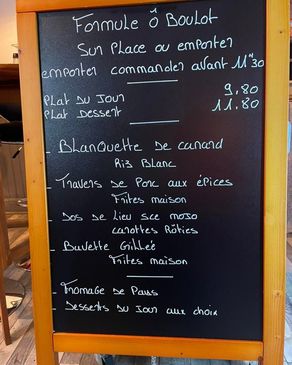 Formule Ô Boulot
Sur Place ou emporter
emporter commander avant 11H30
Plat du Jour 9,80
Plat Dessert 11.80
- Blanquette de canard
Riz Blanc
- Travers de Porc aux épices
Frites maison
- Dos de Lieu sce mojo
carottes Rôties
- Buvette Grillée
Frites maison
- Fromage de Pays
- Desserts du Jour aux choix